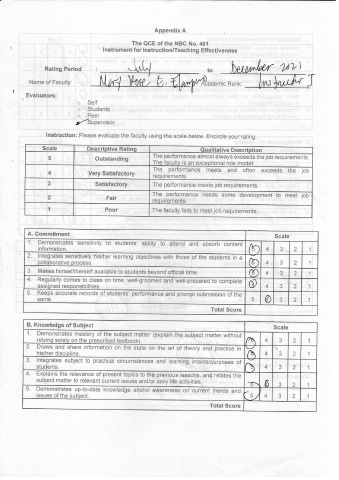 Appendix A
The QCE of the NBC No. 461
Instrument for Instruction/Teaching Effectiveness
Rating Period : July to December 2021
Name of Faculty: Mary Rose E. Academic Rank: Instructor I
Evaluators:
Self
Students
Peer
Supervisor
Instruction: Please evaluate the faculty using the scale below. Encircle your rating.
Scale Descriptive Rating Qualitative Description
5 Outstanding The performance almost always exceeds the job requirements. The faculty is an exceptional role model
4 Very Satisfactory The performance meets and often exceeds the job requirements
3 Satisfactory The performance meets job requirements
2 Fair The performance needs some development to meet job requirements.
1 Poor The faculty fails to meet job requirements
A. Commitment Scale
1. Demonstrates sensitivity to students' ability to attend and absorb content information. 5 4 3 2 1
2. Integrates sensitively his/her learning objectives with those of the students in a collaborative process 5 4 3 2 1
3. Makes himself/herself available to students beyond official time. 5 4 3 2 1
4. Regularly comes to class on time, well-groomed and well-prepared to complete assigned responsibilities. 5 4 3 2 1
5. Keeps accurate records of students' performance and prompt submission of the same. 5 4 3 2 1
Total Score
B. Knowledge of Subject Scale
1. Demonstrates mastery of the subject matter (explain the subject matter without relying solely on the prescribed textbook) 5 4 3 2 1
2. Draws and share information on the state on the art of theory and practice in his/her discipline. 5 4 3 2 1
3. Integrates subject to practical circumstances and learning intents/purposes of students. 5 4 3 2 1
4. Explains the relevance of present topics to the previous lessons, and relates the subject matter to relevant current issues and/or daily life activities. 5 4 3 2 1
5. Demonstrates up-to-date knowledge and/or awareness on current trends and issues of the subject. 5 4 3 2 1
Total Score